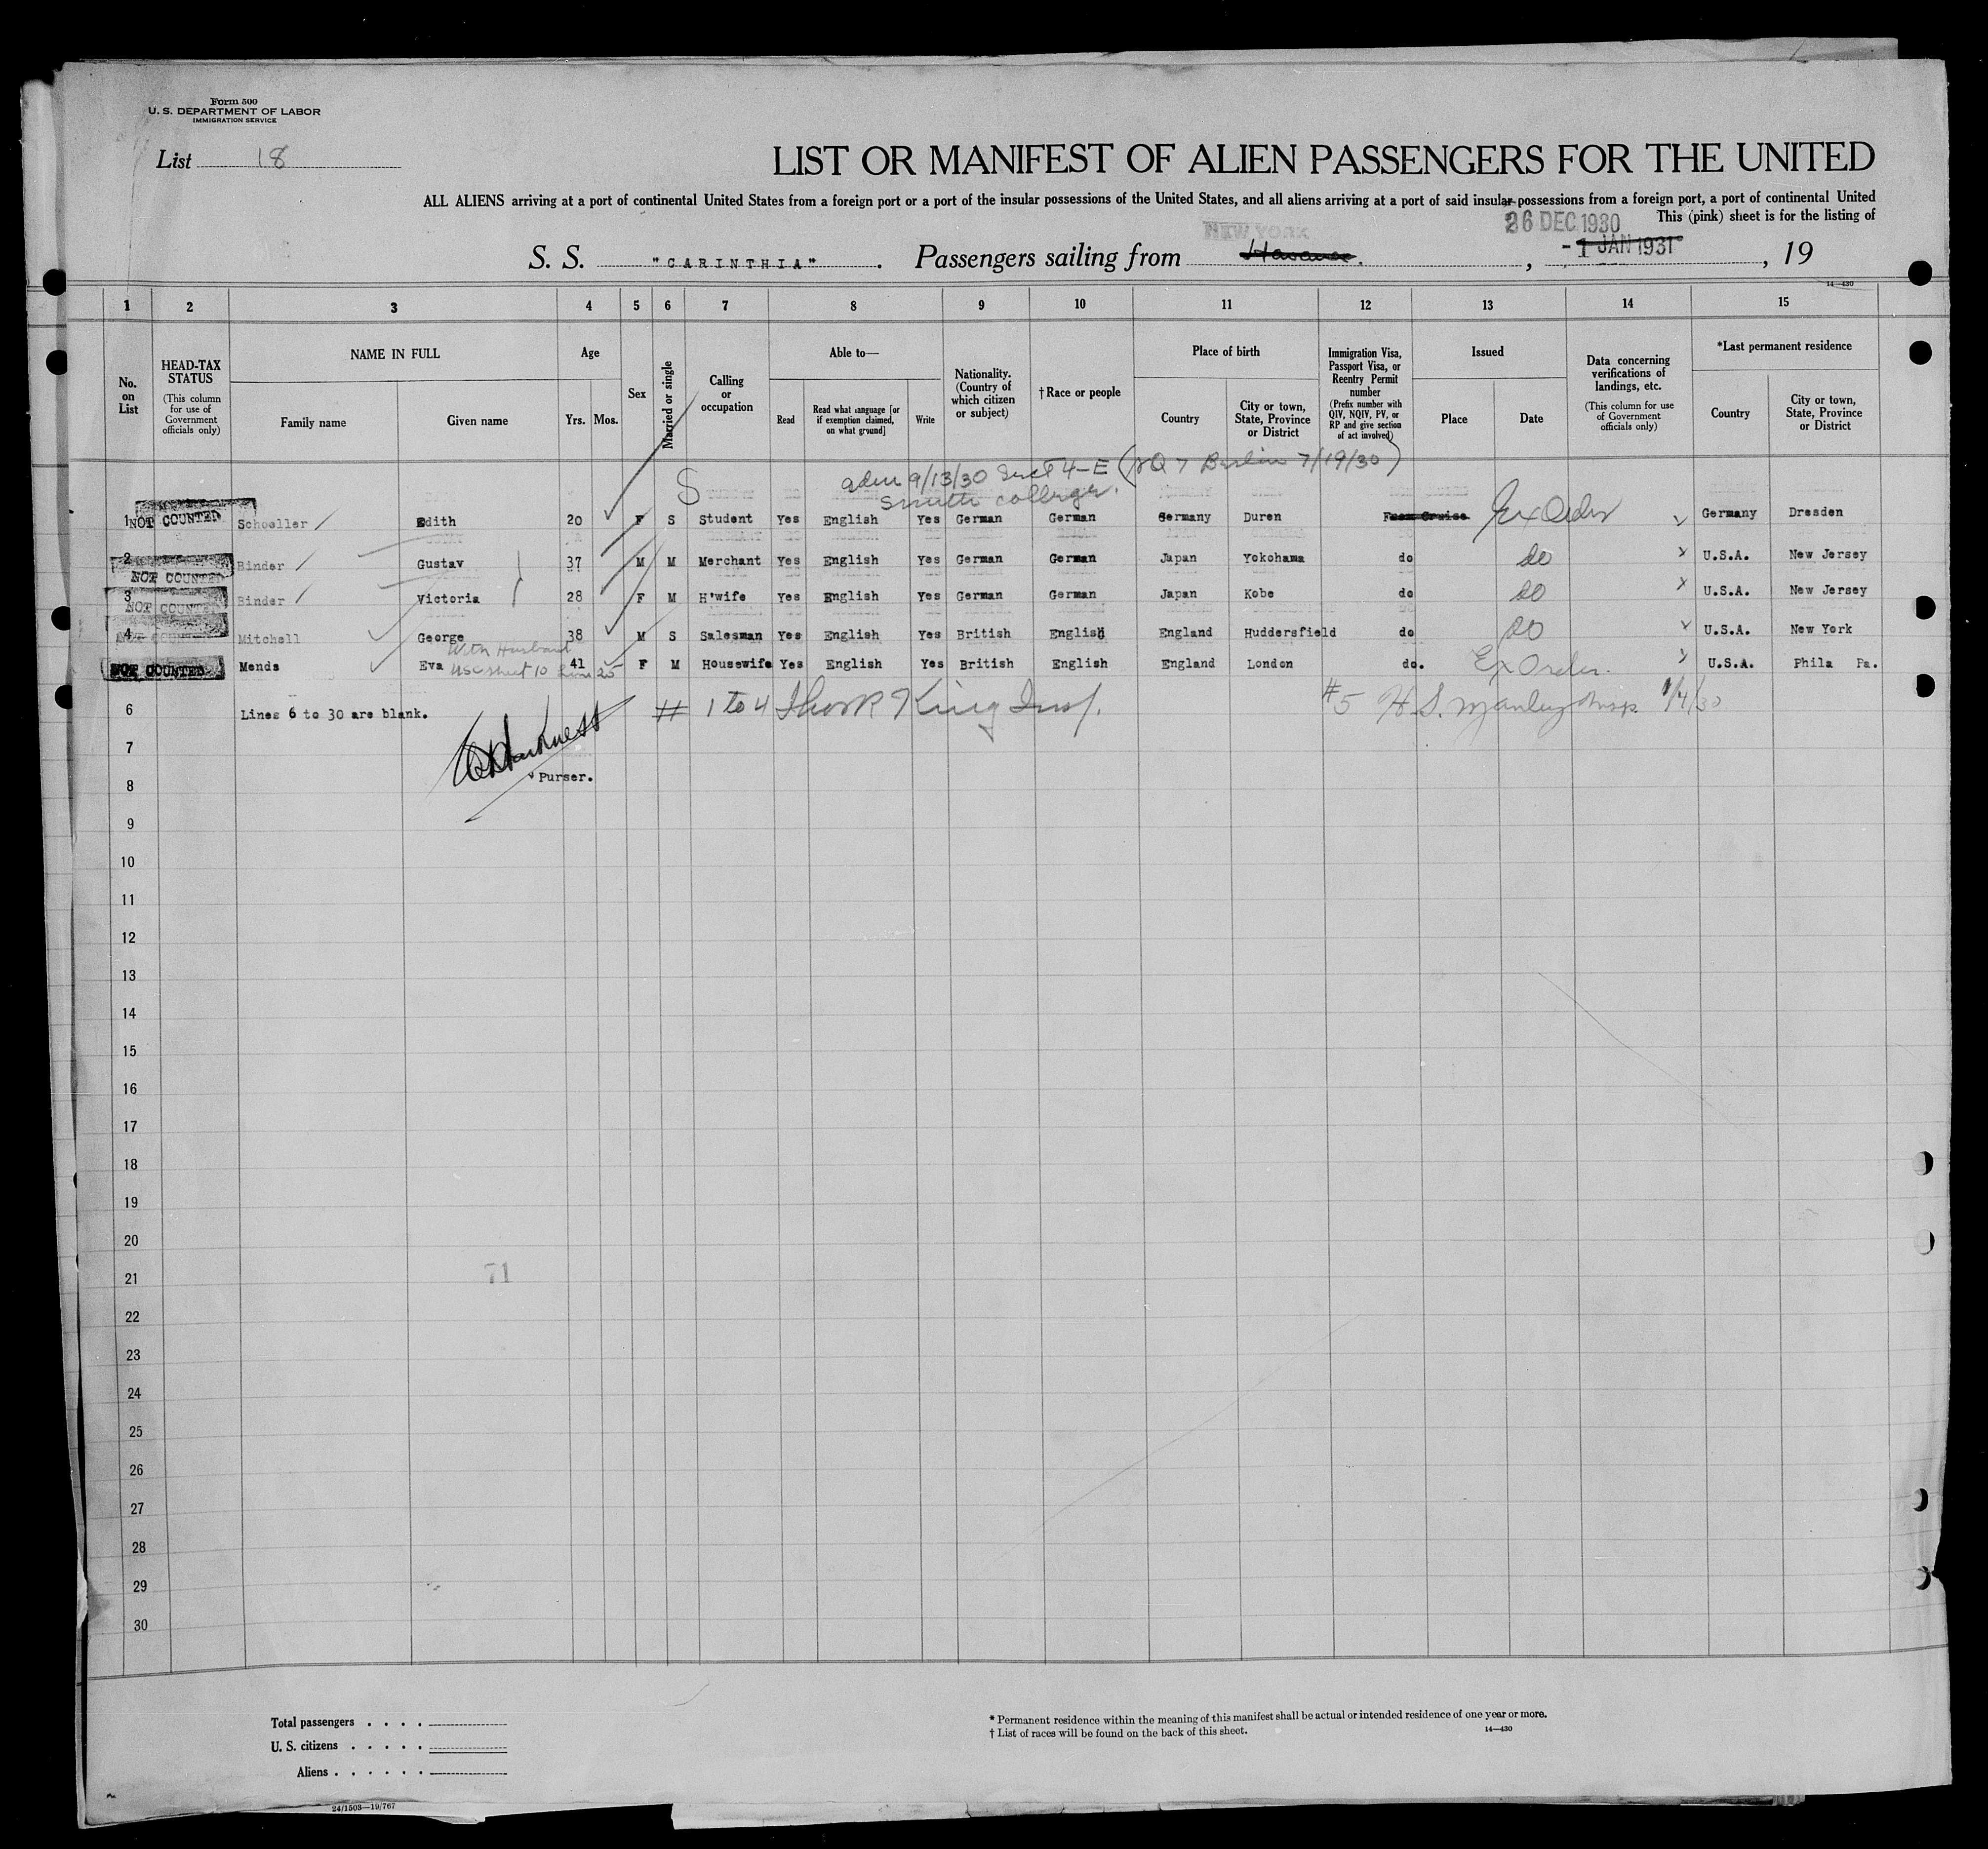 Form 500
U. S. DEPARTMENT OF LABOR
IMMIGRATION SERVICE
List 18
LIST OR MANIFEST OF ALIEN PASSENGERS FOR THE UNITED
ALL ALIENS arriving at a port of continental United States from a foreign port or a port of the insular possessions of the United States, and all aliens arriving at a port of said insular possessions from a foreign port, a port of continental United
This (pink) sheet is for the listing of
NEW YORK
26 DEC 1930
S. S. "CARINTHIA". Passengers sailing from Havana. , -1 JAN 1931 , 19
14-430
1 2 3 4 5 6 7 8 9 10 11 12 13 14 15
No. on List
HEAD-TAX STATUS
(This column for use of Government officials only)
NAME IN FULL
Family name
Given name
Age
Yrs.
Mos.
Sex
Married or single
Calling or occupation
Able to—
Read
Read what language [or if exemption claimed, on what ground]
Write
Nationality. (Country of which citizen or subject)
†Race or people
Place of birth
Country
City or town, State, Province or District
Immigration Visa, Passport Visa, or Reentry Permit number
(Prefix number with QIV, NQIV, PV, or RP and give section of act involved)
Issued
Place
Date
Data concerning verifications of landings, etc.
(This column for use of Government officials only)
*Last permanent residence
Country
City or town, State, Province or District
S adm 9/13/30 Sect 4-E ( Berlin 7/19/30)
Smith College.
1 NOT COUNTED Schoeller Edith 20 F S Student Yes English Yes German German Germany Duren From Cruise Ex Order Germany Dresden
2 NOT COUNTED Binder Gustav 37 M M Merchant Yes English Yes German German Japan Yokohama do do U.S.A. New Jersey
3 NOT COUNTED Binder Victoria 28 F M H'wife Yes English Yes German German Japan Kobe do do U.S.A. New Jersey
4 NOT COUNTED Mitchell George 38 M S Salesman Yes English Yes British English England Huddersfield do do U.S.A. New York
With Husband
NOT COUNTED Mends Eva 41 F M Housewife Yes English Yes British English England London do. Ex Order. U.S.A. Phila Pa.
USC sheet 10 Line 25
6 Lines 6 to 30 are blank. # 1 to 4 King Insp. #5 H. S. Manley Insp. 1/4/30
7
Harkness
Purser.
8
9
10
11
12
13
14
15
16
17
18
19
20
21
71
22
23
24
25
26
27
28
29
30
Total passengers . . . .
U. S. citizens . . . . .
Aliens . . . . . .
* Permanent residence within the meaning of this manifest shall be actual or intended residence of one year or more.
† List of races will be found on the back of this sheet.
14—430
24/1503—19/767